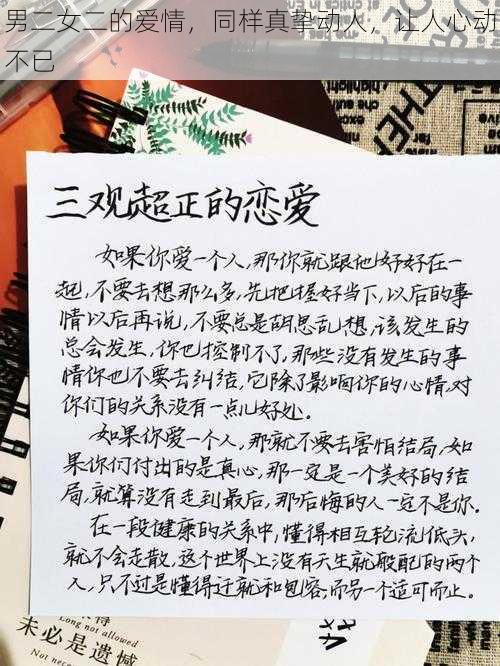 男二女二的爱情，同样真挚动人，让人心动
不已
三观超正的恋爱
如果你爱一个人，那你就跟他好好在一
起，不要去想那么多，先把握好当下，以后的事
情以后再说，不要总是胡思乱想，该发生的
总会发生，你也控制不了，那些没有发生的事
情你也不要去纠结，它除了影响你的心情，对
你们的关系没有一点儿好处。
如果你爱一个人，那就不要去害怕结局，如
果你们付出的是真心，那一定是一个美好的结
局，就算没有走到最后，那后悔的人一定不是你。
在一段健康的关系中，懂得相互轮流低头，
就不会走散，这个世界上没有天生就般配的两个
人，只不过是懂得迁就和包容，而另一个适可而止。
Long not allowed
未必是遗憾
Not necessarily